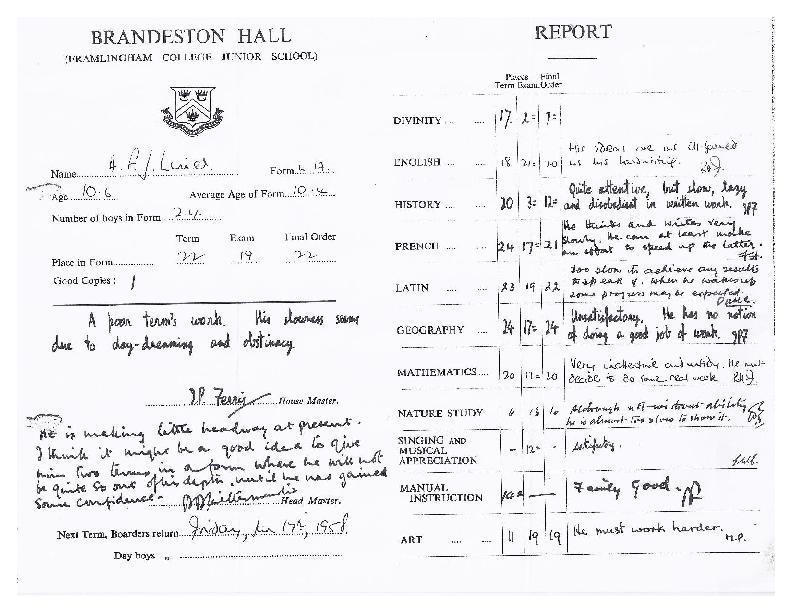 BRANDESTON HALL
(FRAMLINGHAM COLLEGE JUNIOR SCHOOL)
Name Form
Age 10.6 Average Age of Form 10.4
Number of boys in Form 24
Term Exam Final Order
Place in Form 22 19 22
Good Copies: 1
A poor term's work. His slowness seems
due to day-dreaming and obstinacy
House Master.
He is making little headway at present.
I think it might be a good idea to give
him two terms in a form where he will not
be quite so out of his depth, until he has gained
some confidence.
Head Master.
Next Term, Boarders return Friday, Jan 17th, 1958
Day boys "
REPORT
Places Final
Term Exam Order
DIVINITY 17 2=
ENGLISH 18 20 His ideas are as ill-formed
as his handwriting.
HISTORY 20 3= 12= Quite attentive, but slow, lazy
and disobedient in written work.
FRENCH 24 17= 21 He thinks and writes very
slowly. He can at least make
an effort to speed up the latter.
LATIN 23 19 22 Too slow to achieve any results
to speak of. When he wakes up
some progress may be expected.
GEOGRAPHY 24 17= 24 Unsatisfactory. He has no notion
of doing a good job of work.
MATHEMATICS 20 20 Very inattentive and untidy. He must
decide to do some real work
NATURE STUDY Although not without ability
he is almost too slow to show it.
SINGING AND
MUSICAL
APPRECIATION - 12= - satisfactory.
MANUAL
INSTRUCTION Fairly Good.
ART 11 19 19 He must work harder.